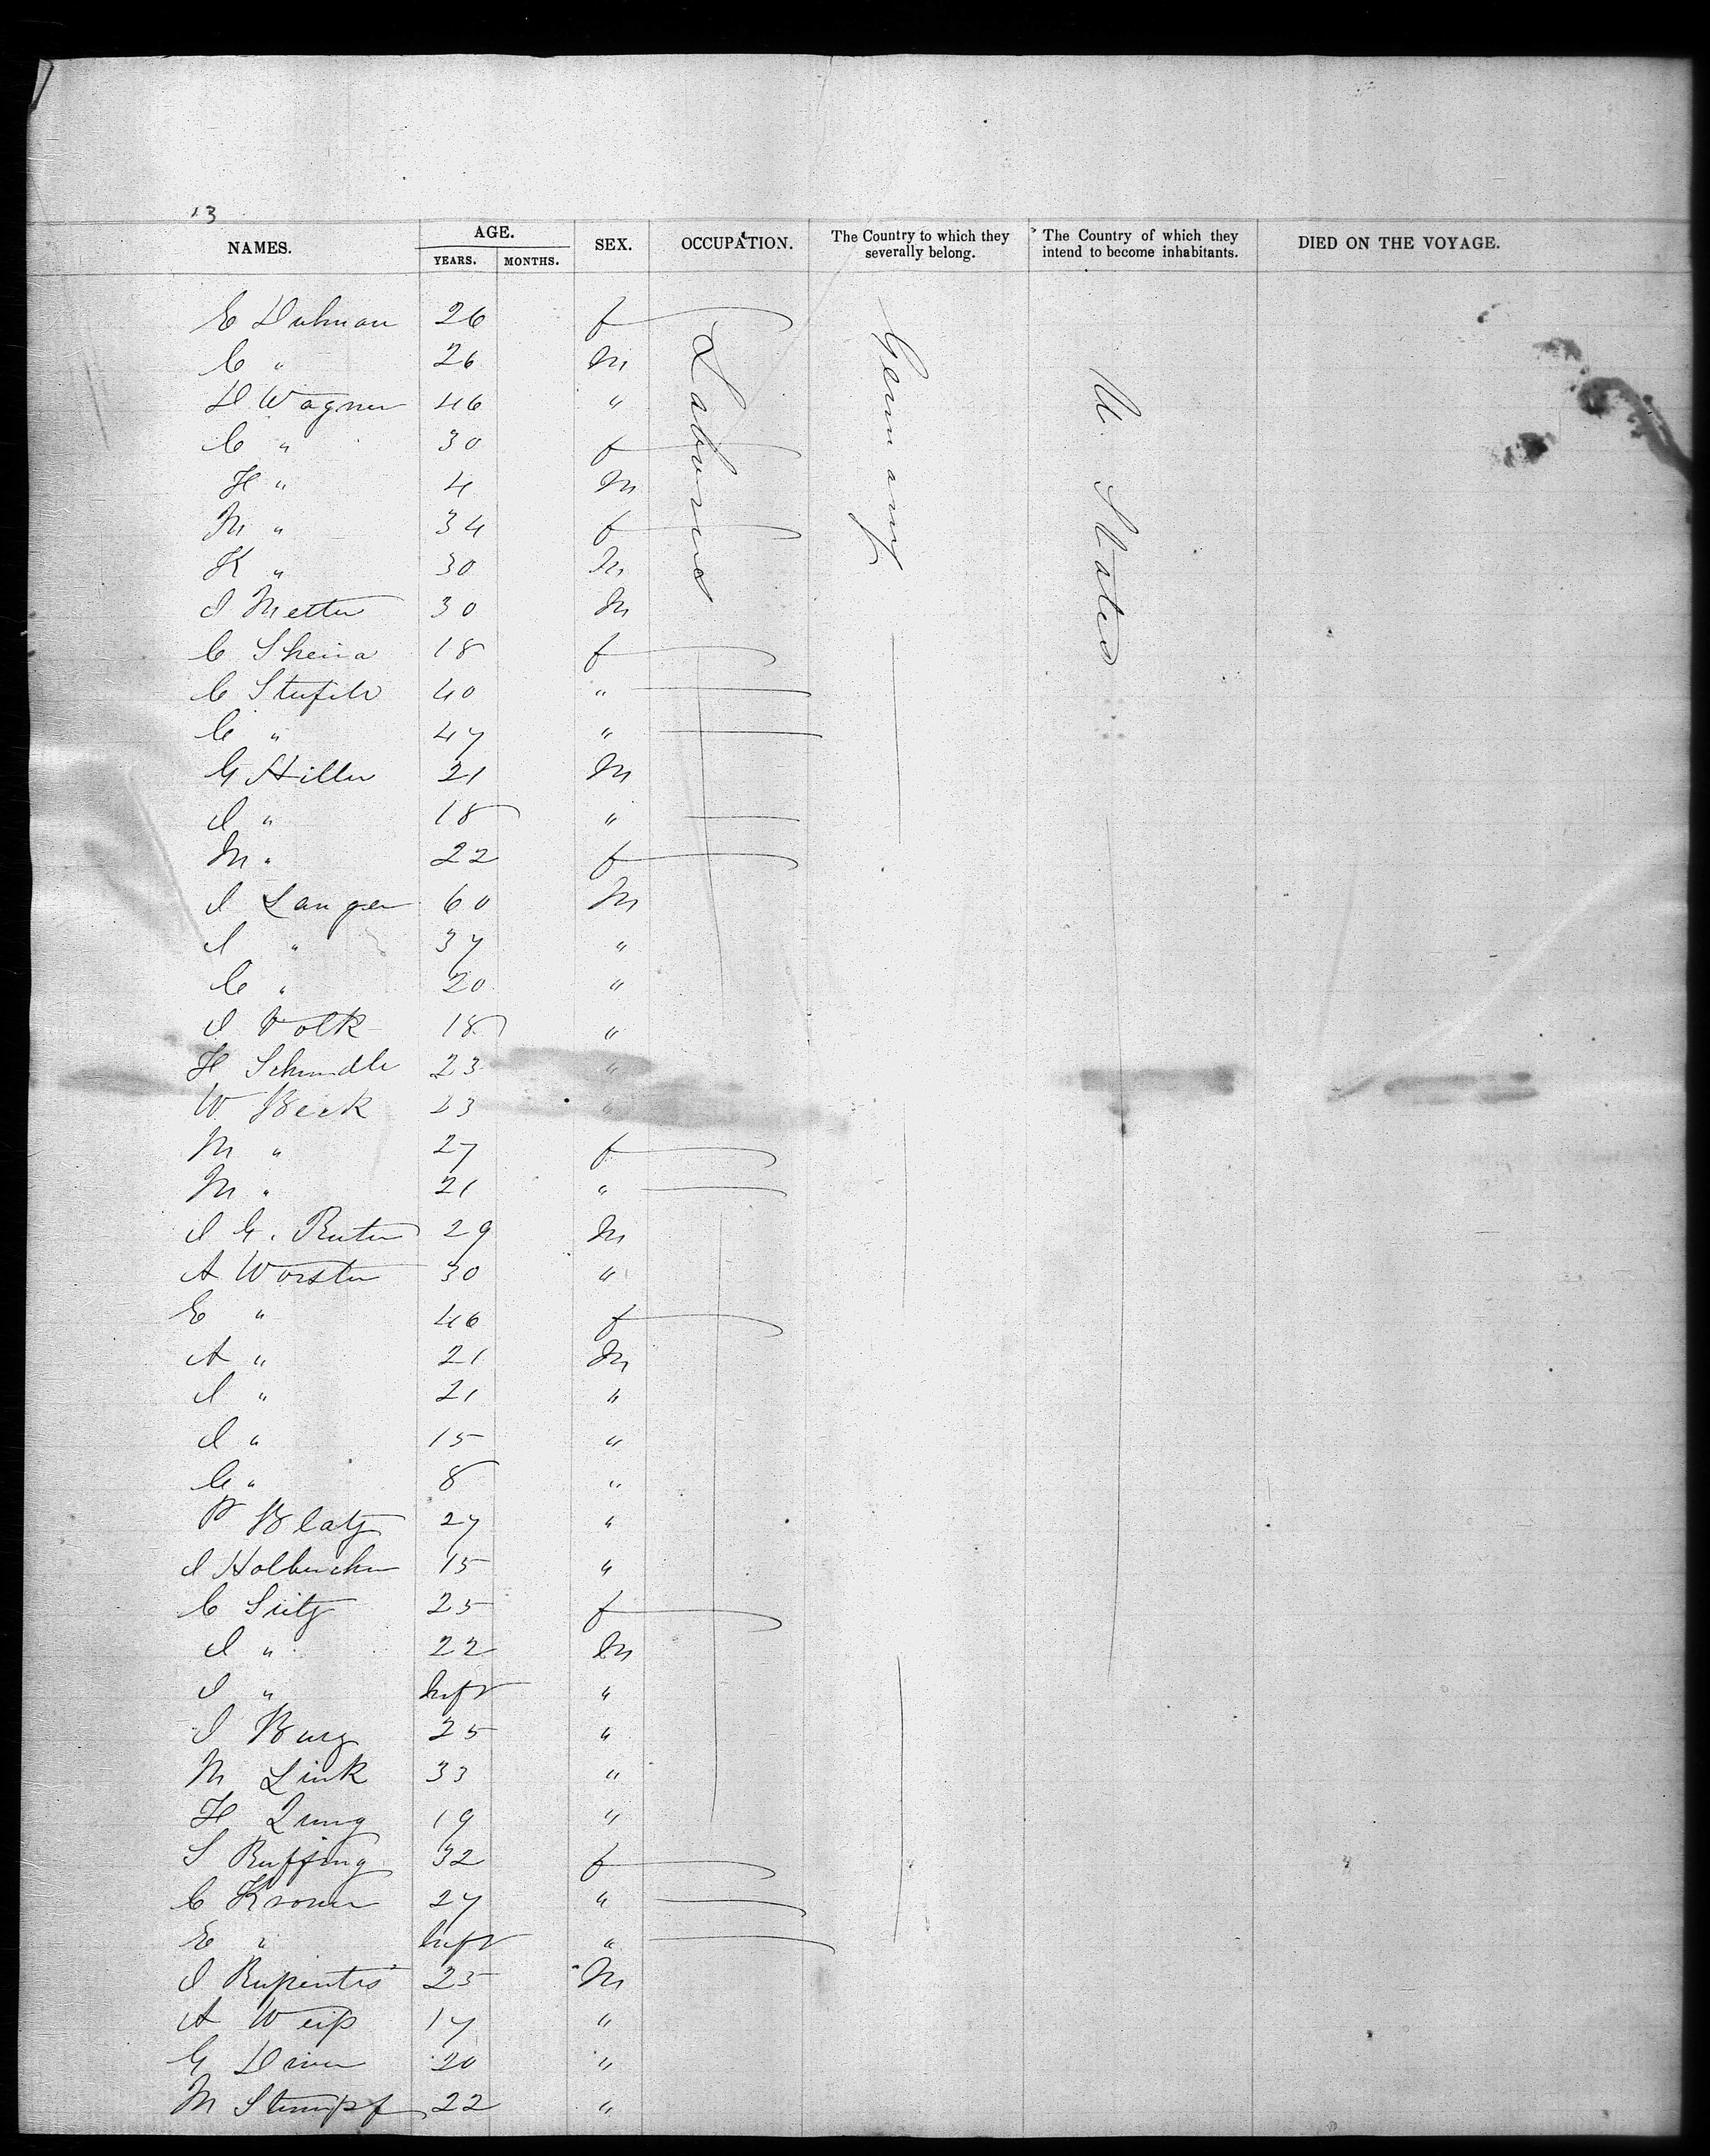 13
NAMES. AGE. YEARS. MONTHS. SEX. OCCUPATION. The Country to which they severally belong. The Country of which they intend to become inhabitants. DIED ON THE VOYAGE.
E Duhman 26 f Laborers Germany U. States
C " 26 M
D Wagner 46 "
C " 30 f
H " 4 M
M " 34 f
K " 30 M
I Metter 30 M
C 18 f
C 40 "
C " 47 "
G Hiller 21 M
I " 18 "
M " 22 f
I Langer 60 M
I " 37 "
C " 20 "
I Volk 18 "
H Schmdle 23 "
W Beck 23 "
M " 27 f
M " 21 "
I G. Ruter 29 M
A Worster 30 "
E " 46 f
A " 21 M
I " 21 "
I " 15 "
C " 8 "
P Blatz 27 "
I 15 "
C Seitz 25 f
I " 22 M
I " Inft "
I Burg 25 "
M Link 33 "
H 19 "
S Ruffing 32 f
C Kroner 27 "
E " Inft "
I 25 M
A Weiß 17 "
G 20 "
M Stumpf 22 "